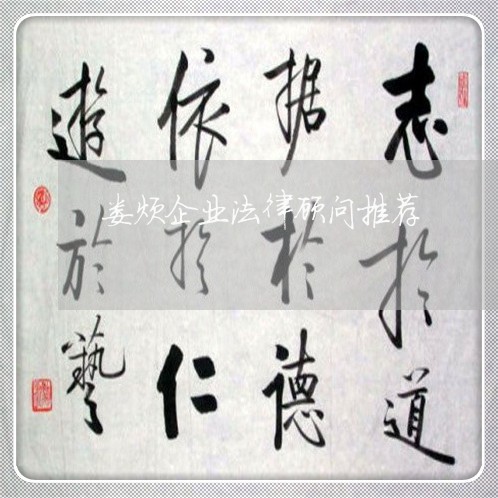 志於道
据於德
依於仁
遊於藝
娄烦企业法律顾问推荐